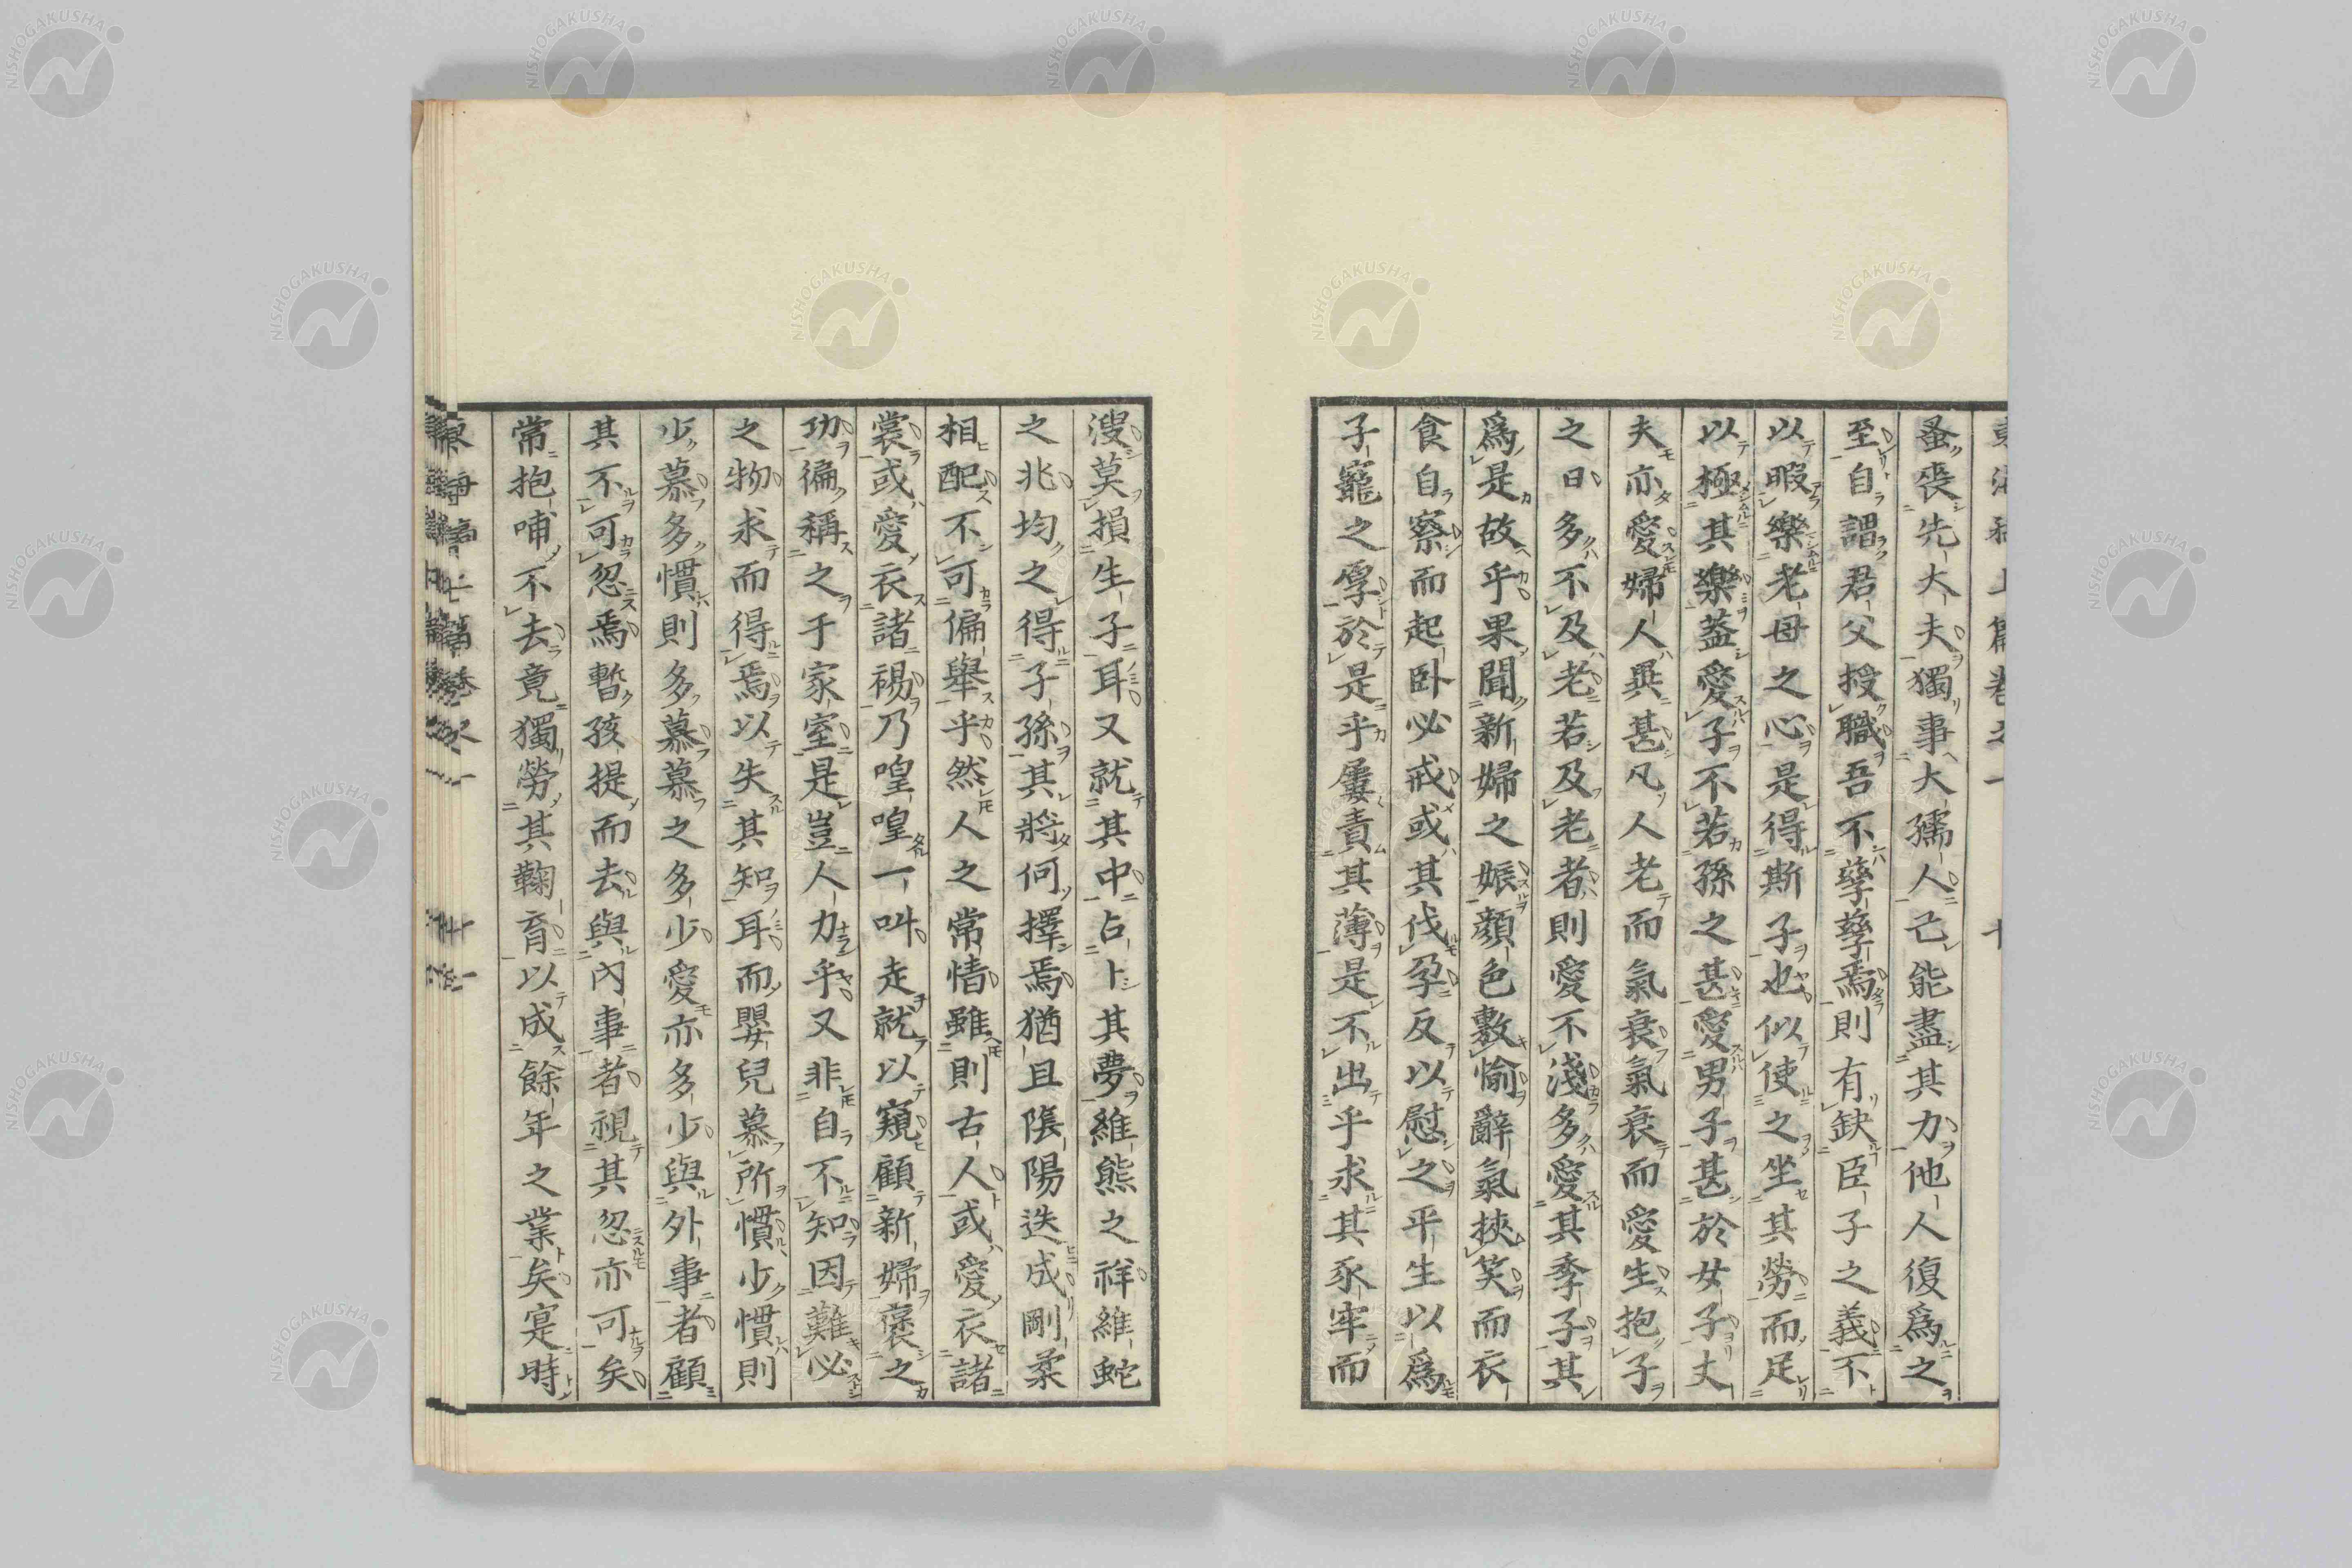 蚤喪先大夫獨事大孺人己能盡其力他人復爲之
至自謂君父授職吾不孳孳焉則有缺臣子之義不
以暇樂老母之心是得斯子也似使之坐其勞而足
以極其樂蓋愛子不若孫之甚愛男子甚於女子丈
夫亦愛婦人異甚凡人老而氣衰氣衰而愛生抱子
之日多不及老若及老者則愛不淺多愛其季子其
爲是故乎果聞新婦之娠顏色敷愉辭氣挾笑而衣
食自察而起臥必戒或其伐孕反以慰之平生以爲
子寵之厚於是乎屢責其薄是不出乎求其豕牢而
溲莫損生子耳又就其中占卜其夢維熊之祥維蛇
之兆均之得子孫其將何擇焉猶且陰陽迭成剛柔
相配不可偏舉乎然人之常情雖則古人或愛衣諸
裳或愛衣諸裼乃喤喤一叫走就以窺顧新婦褒之
功徧稱之于家室是豈人力乎又非自不知因難必
之物求而得焉以失其知耳而嬰兒慕所慣少慣則
少慕多慣則多慕慕之多少愛亦多少與外事者顧
其不可忽焉暫孩提而去與內事者視其忽亦可矣
常抱哺不去竟獨勞其鞠育以成餘年之業矣寔時
NISHOGAKUSHA